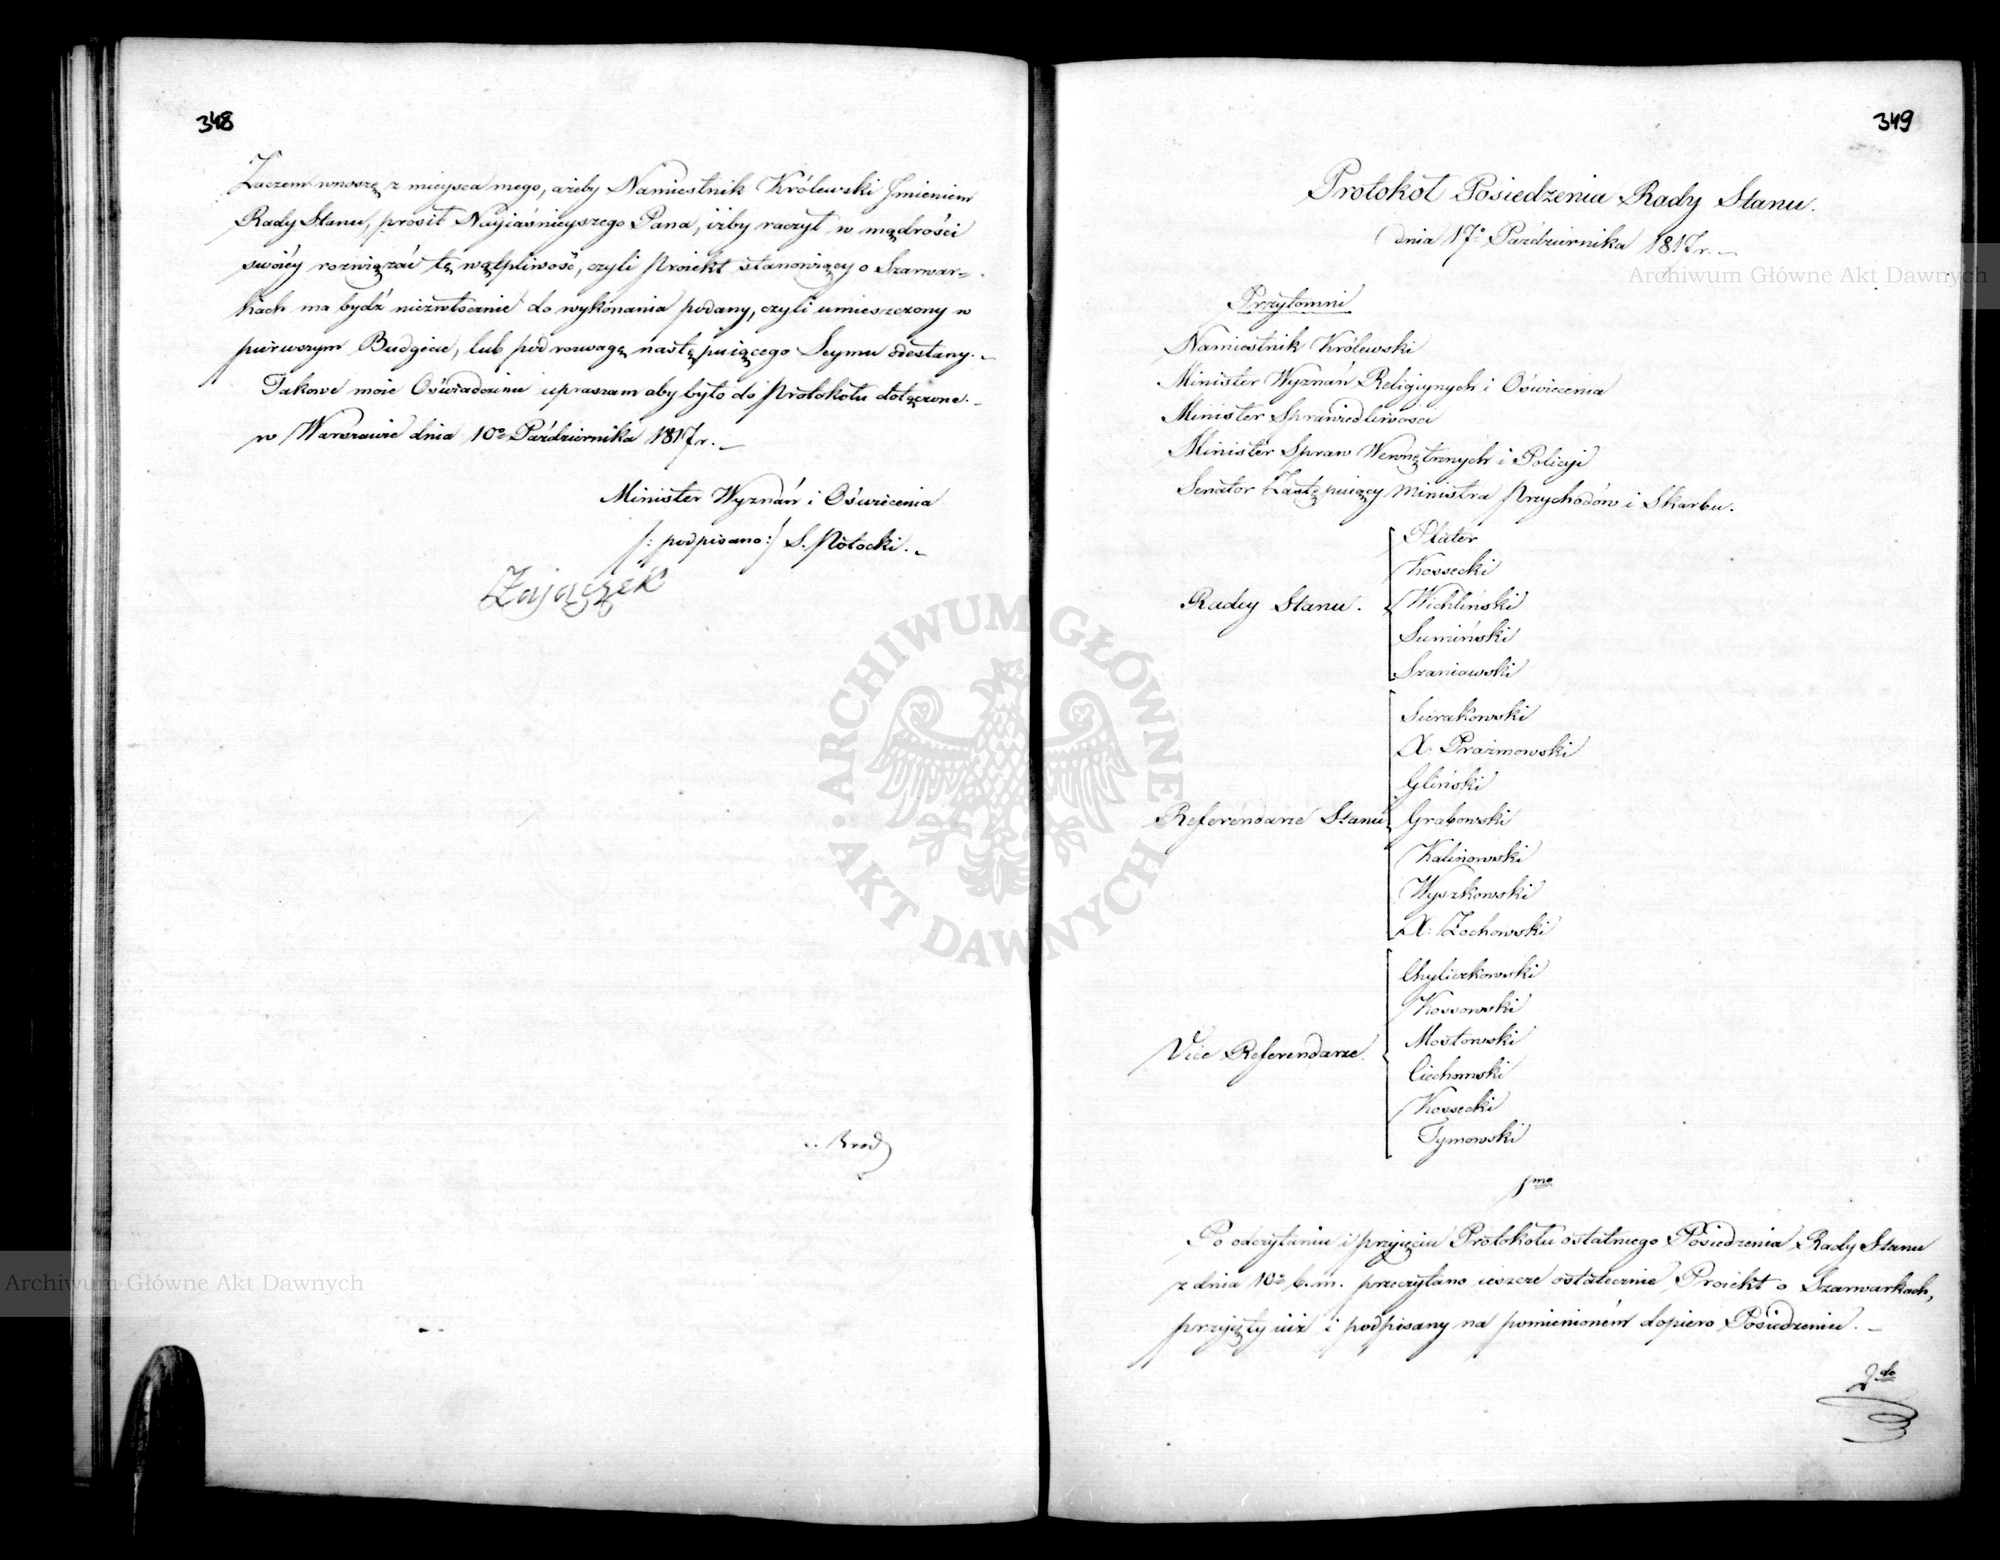 348
Zaczem wnoszę z mieysca mego, ażeby Namiestnik Królewski Jmieniem
Rady Stanu, prosił Nayiaśnieyszego Pana, iżby raczył w mądrości
swoiéy rozwiązać tę wątpliwość, czyli Proiekt stanowiący o Szarwar=
kach ma bydź niezwłocznie do wykonania podany, czyli umieszczony w
pierwszym Budgecie, lub pod rozwagę następuiącego Seymu odesłany. –
Takowe moie Oświadczenie upraszam aby było do Protokołu dołączone. –
w Warszawie dnia 10º Października 1817 r. –
Minister Wyznań i Oświecenia
/: podpisano :/ S. Potocki. –
Zajączek
349
Protokół Posiedzenia Rady Stanu.
dnia 17º Października 1817 r. –
Przytomni
Namiestnik Królewski
Minister Wyznań Religiynych i Oświecenia
Minister Sprawiedliwości
Minister Spraw Wewnętrznych i Policyi
Senator Zastępuiący Ministra Przychodów i Skarbu.
Plater
Kossecki
Radcy Stanu. Wichliński
Sumiński
Szaniawski
Sierakowski
X. Prażmowski
Gliński
Referendarze Stanu Grabowski
Kalinowski
Wyszkowski
X. Zochowski
Chyliczkowski
Kossowski
Mostowski
Vice Referendarze. Ciechomski
Kossecki
Tymowski
1mo
Po odczytaniu i przyięciu Protokołu ostatniego Posiedzenia Rady Stanu
z dnia 10º b. m. przeczytano ieszcze ostatecznie Proiekt o Szarwarkach,
przyięty iuż i podpisany na pomienioném dopiero Posiedzeniu. –
2do
ARCHIWUM GŁÓWNE AKT DAWNYCH
Archiwum Główne Akt Dawnych
Archiwum Główne Akt Dawnych